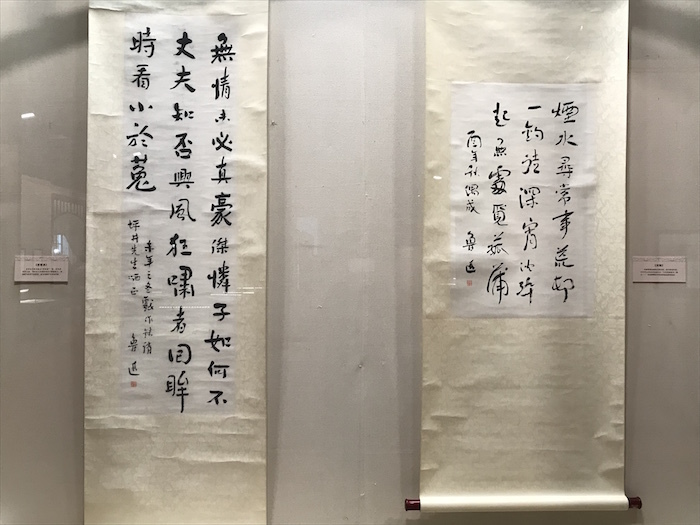 煙水尋常事荒邨
一釣徒深宵沉醉
起無處覓菰蒲
酉年秋偶成 魯迅
無情未必真豪傑憐子如何不
丈夫知否興風狂嘯者回眸
時看小於菟
未年之冬戲作錄請
坪井先生哂正
魯迅